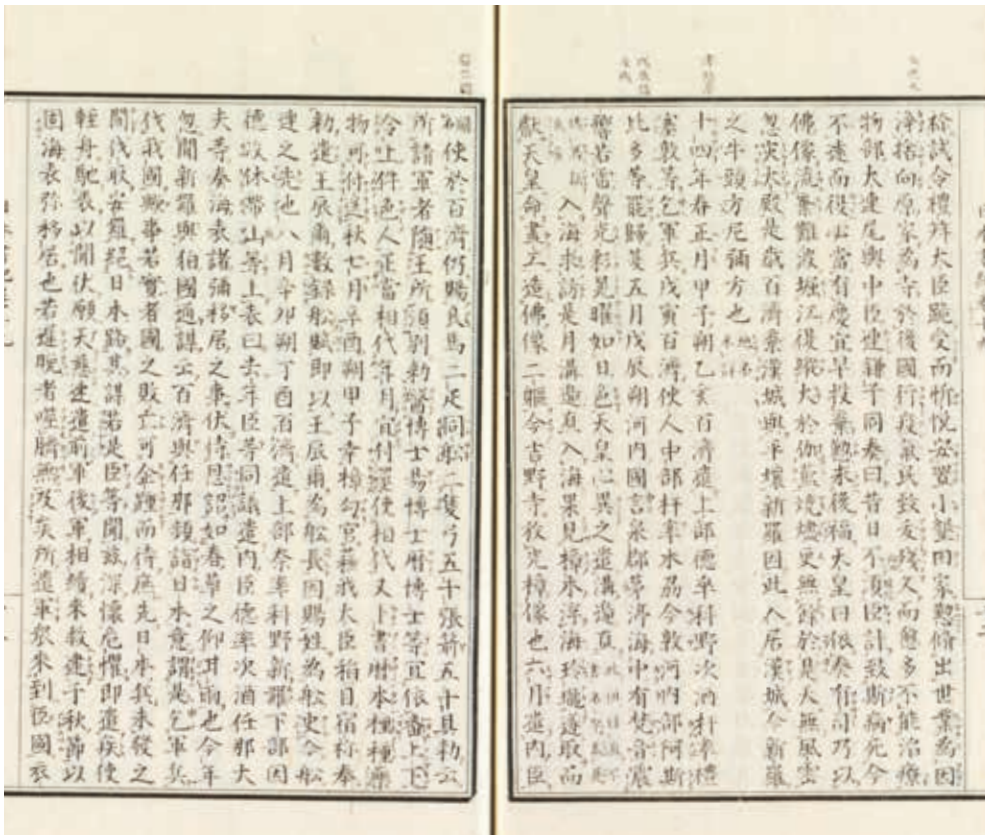 祢試令禮拜大臣跪受而忻悅安置小墾田家懃脩出世業為因
淨捨向原家為寺於後國行疫氣民致夭殘久而愈多不能治療
物部大連尾輿中臣連鎌子同奏曰昔日不須臣計致斯病死今
不遠而復必當有慶宜早投棄懃求後福天皇曰依奏有司乃以
佛像流棄難波堀江復縱火於伽藍燒燼更無餘於是天無風雲
忽災大殿是歲百濟棄漢城與平壤新羅因此入居漢城今新羅
之牛頭方尼彌方也地名未詳
十四年春正月甲子朔乙亥百濟遣上部德率科野次酒杆率禮
塞敦等乞軍兵戊寅百濟使人中部杆率木刕今敦河內部阿斯
比多等罷歸夏五月戊辰朔河內國言泉郡茅渟海中有梵音震
響若雷聲光彩晃曜如日色天皇心異之遣溝邊直
入海求訪是月溝邊直入海果見樟木浮海玲瓏遂取而
獻天皇命畫工造佛像二軀今吉野寺放光樟像也六月遣內臣
使於百濟仍賜良馬二疋同船二隻弓五十張箭五十具勅云
所請軍者隨王所須別勅醫博士易博士曆博士等宜依番上下
今上件色人正當相代年月宜付還使相代又卜書曆本種種藥
物可付送秋七月辛酉朔甲子幸樟勾宮蘇我大臣稻目宿祢奉
勅遣王辰爾數錄船賦即以王辰爾為船長因賜姓為船史今船
連之先也八月辛卯朔丁酉百濟遣上部奈率科野新羅下部固
德汶休帶山等上表曰去年臣等同議遣內臣德率次酒任那大
夫等奏海表諸彌移居之事伏待恩詔如春草之仰甘雨也今年
忽聞新羅與狛國通謀云百濟與任那頻詣日本意謂是乞軍兵
伐我國歟事若實者國之敗亡可企踵而待庶先日本兵未發之
間伐取安羅絕日本路其謀若是臣等聞茲深懷危懼即遣疾使
輕舟馳表以聞伏願天慈速遣前軍後軍相續來救逮于秋節以
固海表弥移居也若遲晚者噬臍無及矣所遣軍衆來到臣國衣